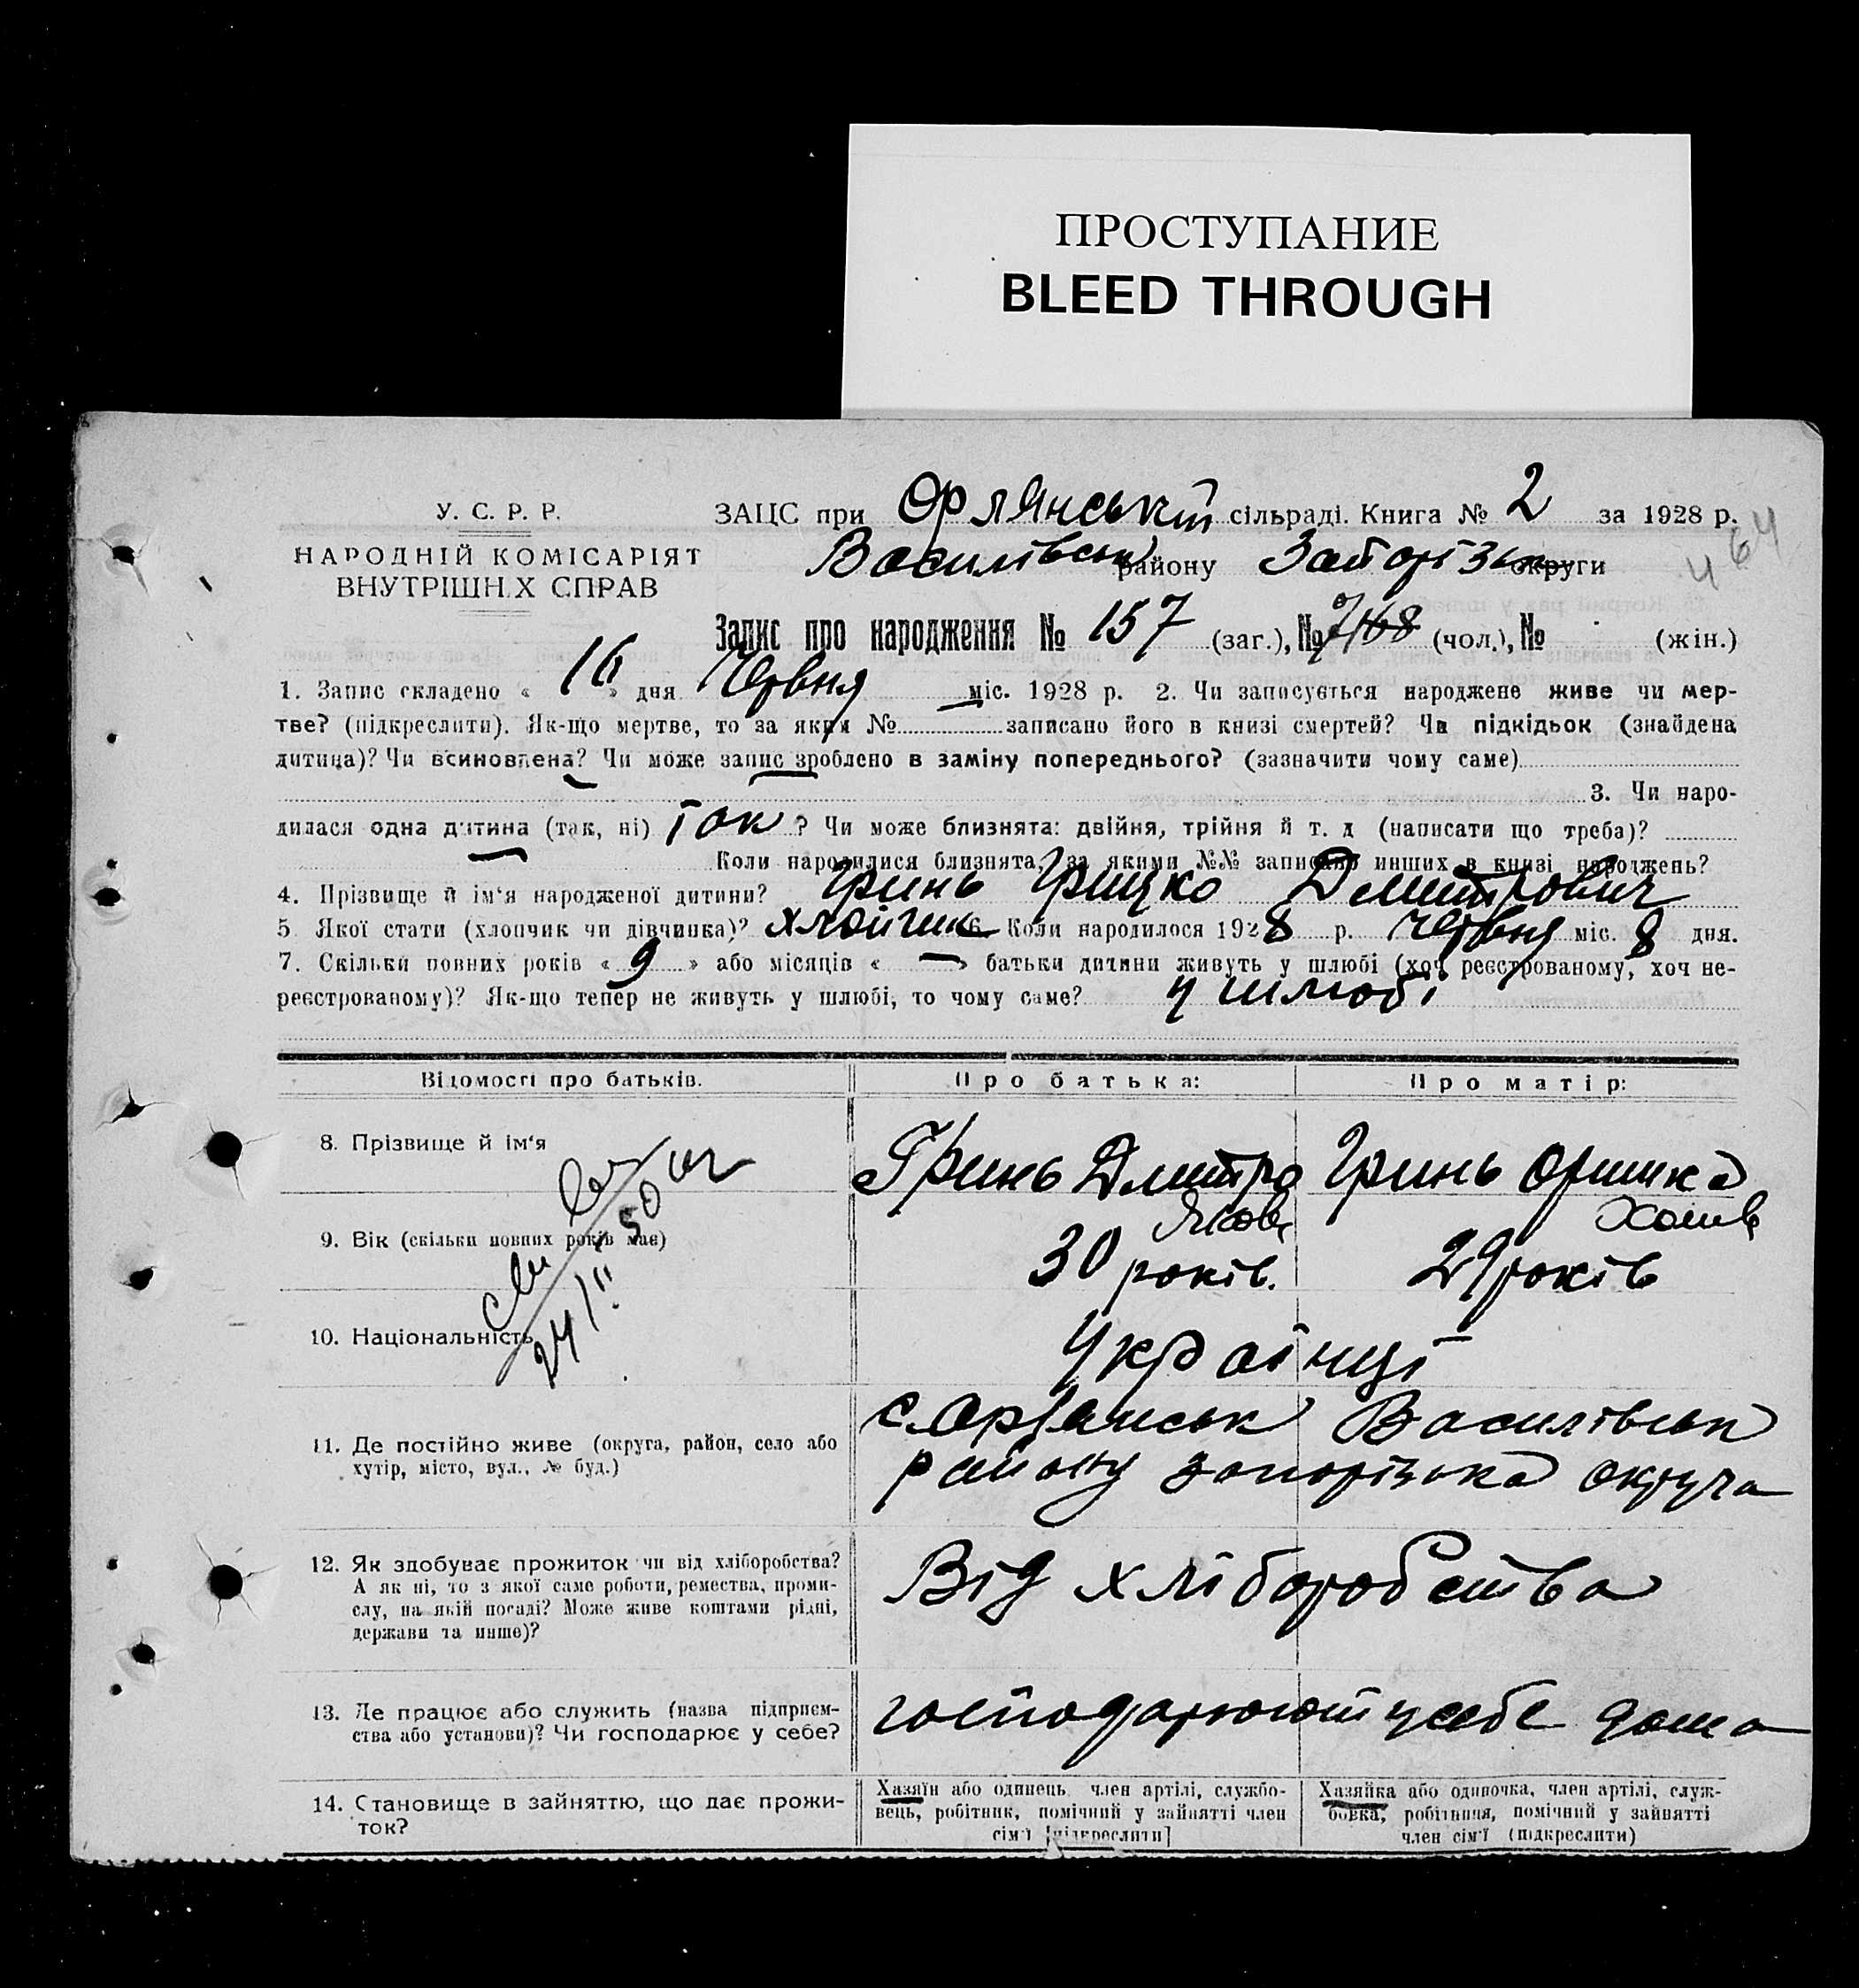 ПРОСТУПАНИЕ
BLEED THROUGH
У. С. Р. Р.
НАРОДНІЙ КОМІСАРІЯТ
ВНУТРІШН.Х СПРАВ
464
ЗАЦС при Орлянській сільраді. Книга № 2 за 1928 р.
Василівськ району Запорізьк округи
Запис про народження № 157 (заг.), № (чол.), № (жін.)
1. Запис складено « 16 » дня Червня міс. 1928 р. 2. Чи записується народжене живе чи мер-
тве? (підкреслити). Як-що мертве, то за яким № записано його в книзі смертей? Чи підкідьок (знайдена
дитина)? Чи всиновлена? Чи може запис зроблено в заміну попереднього? (зазначити чому саме)
3. Чи наро-
дилася одна дитина (так, ні) так ? Чи може близнята: двійня, трійня й т. д (написати що треба)?
Коли народилися близнята, за якими №№ записано инших в книзі народжень?
4. Прізвище й ім‘я народженої дитини? Гринь Грицко Дмитрович
5 Якої стати (хлопчик чи дівчинка)? хлопчик 6. Коли народилося 1928 р. червня міс. 8 дня.
7. Скільки повних років « 9 » або місяців « — » батьки дитини живуть у шлюбі (хоч реєстрованому, хоч не-
реєстрованому)? Як-що тепер не живуть у шлюбі, то чому саме? у шлюбі
Відомості про батьків. Про батька: Про матір:
8. Прізвище й ім‘я Гринь Дмитро Яков Гринь Оришка
9. Вік (скільки повних років має) 30 років. 29 років
24/II 50
10. Національність Українці
11. Де постійно живе (округа, район, село або
хутір, місто, вул., № буд.)
с. Орлянськ Василівськ
району запорізька округа
12. Як здобуває прожиток чи від хліборобства?
А як ні, то з якої саме роботи, ремества, проми-
слу, на якій посаді? Може живе коштами рідні,
держави та инше)?
Від хліборобства
13. Де працює або служить (назва підприєм-
ства або установи)? Чи господарює у себе?
господарюют у себе дома
14. Становище в зайняттю, що дає прожи-
ток?
Хазяїн або одинець член артілі, службо-
вець, робітник, помічний у зайнятті член
сім‘ї [підкреслити]
Хазяйка або одиночка, член артілі, служ-
бовка, робітниця, помічний у зайнятті
член сім‘ї (підкреслити)